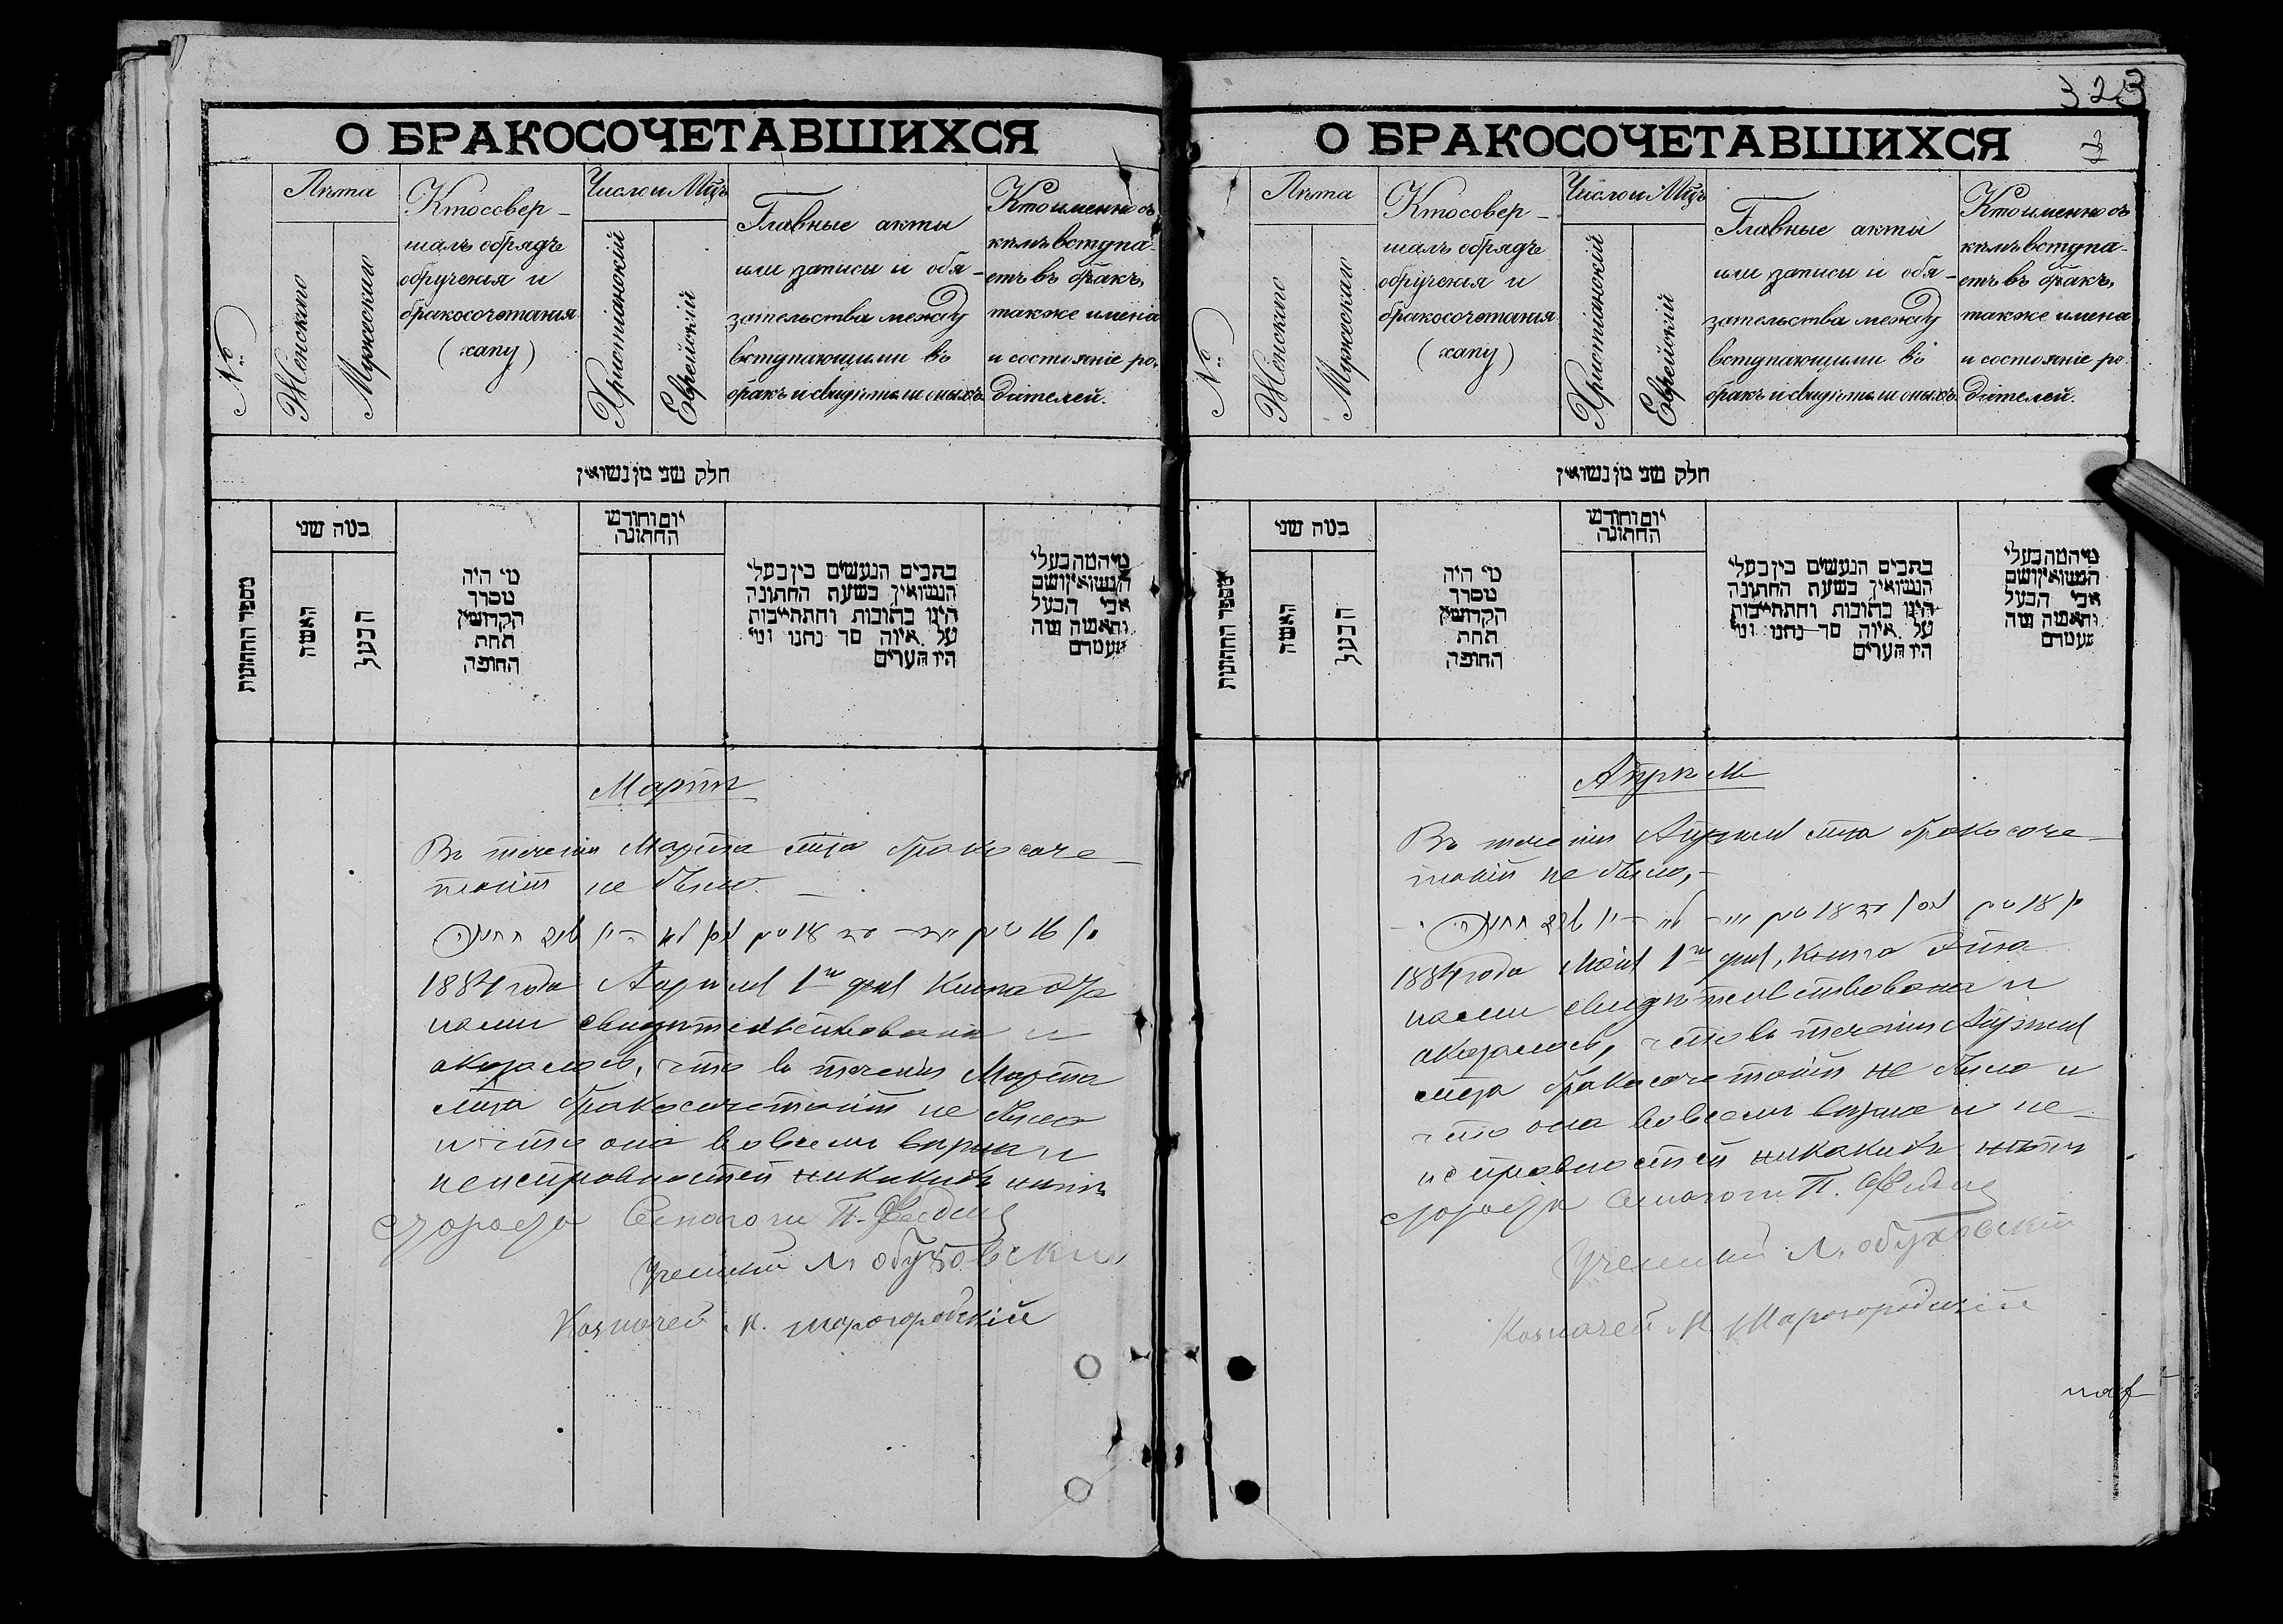 323
О БРАКОСОЧЕТАВШИХСЯ
№
Лѣта
Женскаго
Мужескаго
Кто совер-
шалъ обрядъ
обрученія и
бракосочетанія
(хапу)
Число и Мѣц
Христіанскій
Еврейскій
Главные акты
или записи и обя-
зательства между
вступающими въ
бракъ и свидѣтели оныхъ
Кто именно съ
кѣмъ вступа-
етъ въ бракъ,
также имена
и состояніе ро-
дителей.
חלק שני מן נשואין
מספר החתונות
במה שני
האשה
הבעל
מי היה
מסדר
הקדושין
תחת
החופה
יום וחודש
החתונה
כתבים הנעשים בין בעלי
הנשואין בשעת החתונה
היינו כתובות והתחייבות
על איזה סך נתנו ומי
היו העדים
מי המה בעלי
הנשואין ושם
אבי הבעל
והאשה ומה
מעמדם
Мартъ
Въ теченіи Марта мца бракосоче-
таній не было.
1884 года Апрѣля 1го дня Книга
нами свидѣтельствована и
оказалось, что въ теченіи Марта
мца бракосочетаній не было
и что она во всемъ вѣрна и
неисправностей никакихъ нѣтъ
Ученый Л. Обуховскій
Казначей М. Шарогородскій
О БРАКОСОЧЕТАВШИХСЯ
№
Лѣта
Женскаго
Мужескаго
Кто совер-
шалъ обрядъ
обрученія и
бракосочетанія
(хапу)
Число и Мѣц
Христіанскій
Еврейскій
Главные акты
или записи и обя-
зательства между
вступающими въ
бракъ и свидѣтели оныхъ
Кто именно съ
кѣмъ вступа-
етъ въ бракъ,
также имена
и состояніе ро-
дителей.
חלק שני מן נשואין
מספר החתונות
במה שני
האשה
הבעל
מי היה
מסדר
הקדושין
תחת
החופה
יום וחודש
החתונה
כתבים הנעשים בין בעלי
הנשואין בשעת החתונה
היינו כתובות והתחייבות
על איזה סך נתנו ומי
היו העדים
מי המה בעלי
הנשואין ושם
אבי הבעל
והאשה ומה
מעמדם
Апрѣль
Въ теченіи Апрѣля мца бракосоче-
таній не было,
1884 года Маія 1го дня, Книга эта
нами свидѣтельствована и
оказалось, что въ теченіи Апрѣля
мца бракосочетаній не было и
что она во всемъ вѣрна и не-
исправностей никакихъ нѣтъ
Ученый Л. Обуховскій
Казначей М. Шарогородскій